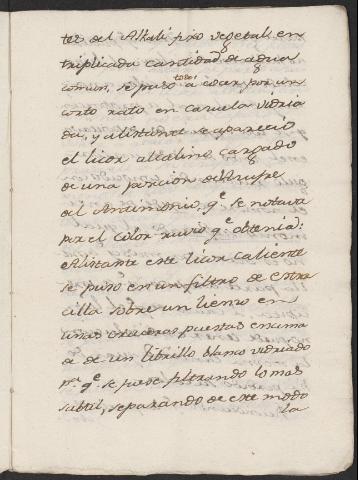 tes del Alkali fixo vegetal: en
triplicada cantidad de agua
comun, se puso todo a cocer por un
corto rato en cazuela vidria
da, y al istante se aparecio
el licor alkalino cargado
de una porcion del Azufre
del Antimonio, q.e se notava
por el color ruvio q.e obtenia:
al istante este licor caliente
se puso en un filtro de estra
cilla sobre un lienzo en
unas cruceras puestas encima
de un librillo blanco vidriado
p.a q.e se fuese filtrando lo mas
subtil, separando de este modo
la